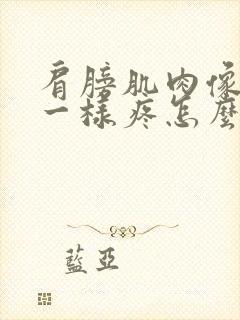 肩膀肌肉像
一樣疼怎麼
藍亞